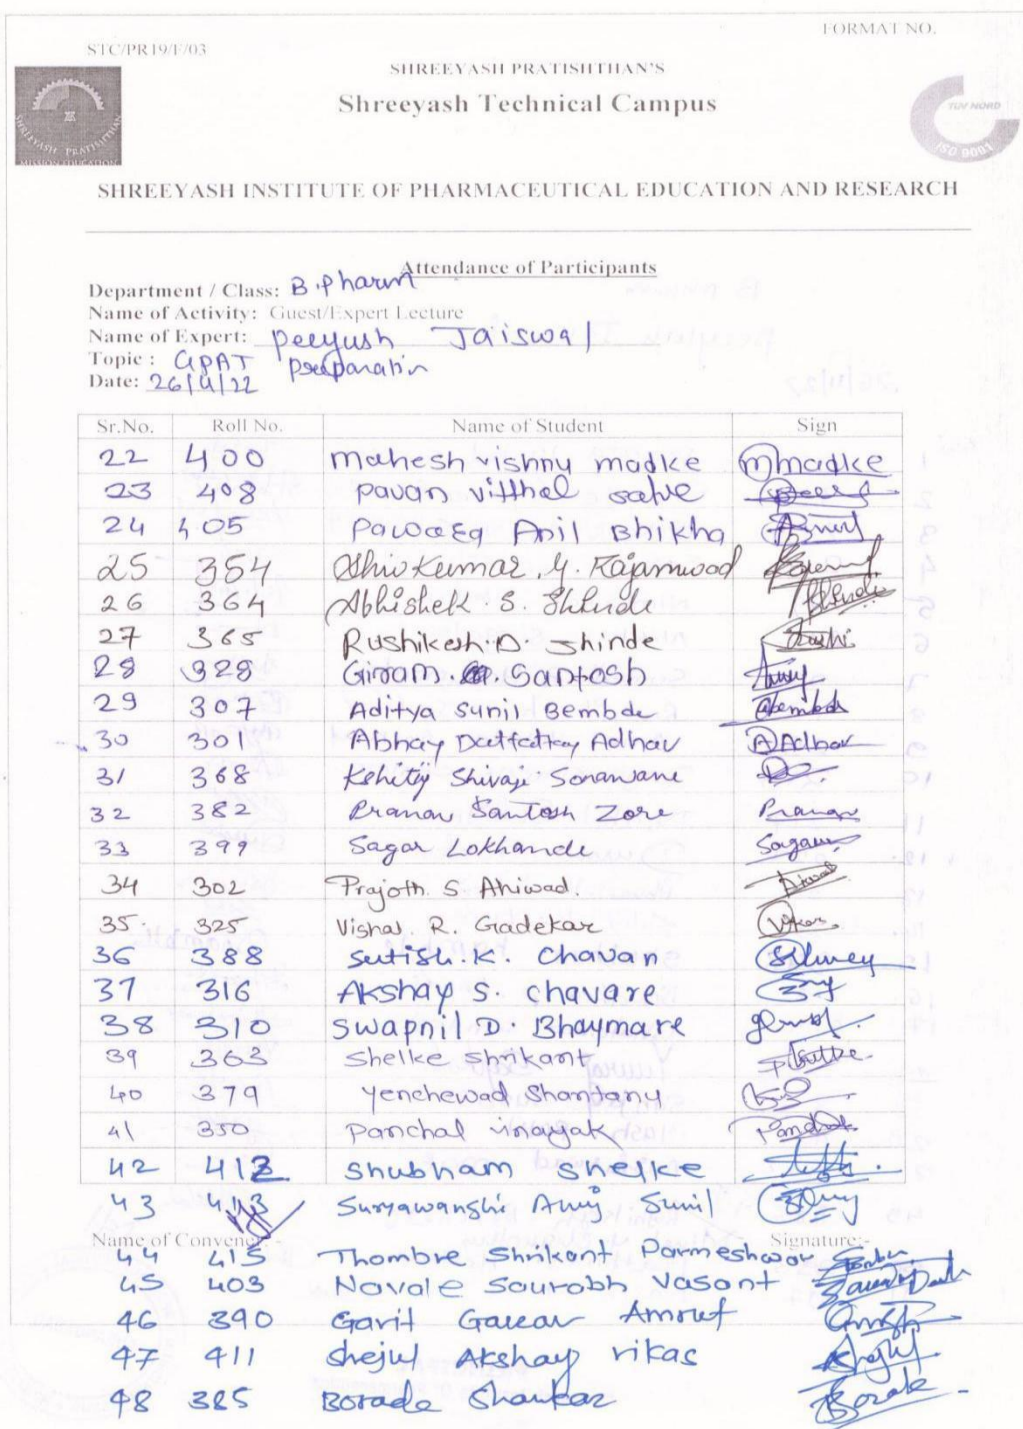 FORMAT NO.
STC/PR19/F/03
SHREEYASH PRATISHTHAN'S
Shreeyash Technical Campus
SHREEYASH PRATISHTHAN
MISSION EDUCATION
TUV NORD
ISO 9001
SHREEYASH INSTITUTE OF PHARMACEUTICAL EDUCATION AND RESEARCH
Attendance of Participants
Department / Class: B.pharm
Name of Activity: Guest/Expert Lecture
Name of Expert: Peeyush Jaiswal
Topic : GPAT Preparatin
Date: 26/11/22
Sr.No. Roll No. Name of Student Sign
22 400 Mahesh vishnu madke Mmadke
23 408 pavan vitthal salve
24 405 Pawara Anil Bhikha
25 354 Shivkumar. G.
26 364 Abhishek. S. Shinde Shinde
27 365 Rushikesh.D. Shinde Rushi
28 328 Giram. G. Santosh
29 307 Aditya Sunil Bembde Abembde
30 301 Abhay Dattatray Adhav AAdhav
31 368 Kshitij Shivaji Sonawane
32 382 Pranav Santosh Zore Pranav
33 399 Sagar Lokhande Sagar
34 302 Prajoth. S. Ahiwad.
35. 325 Vishal R. Gadekar
36 388 Satish.K. Chavan
37 316 Akshay S. chavare
38 310 Swapnil D. Bhaymare
39 363 Shelke Shrikant
40 379 Yenchewad Shantanu
41 350 Panchal vinayak
42 412 Shubham Shelke
43 413 Suryawanshi Anuj Sunil
Name of Convenor:- Signature:-
44 415 Thombre Shrikant Parmeshwar
45 403 Navale Sourabh Vasant
46 390 Gavit Gaurav Amrut
47 411 Shejul Akshay vikas Shejul
48 385 Borade Shankar Borade